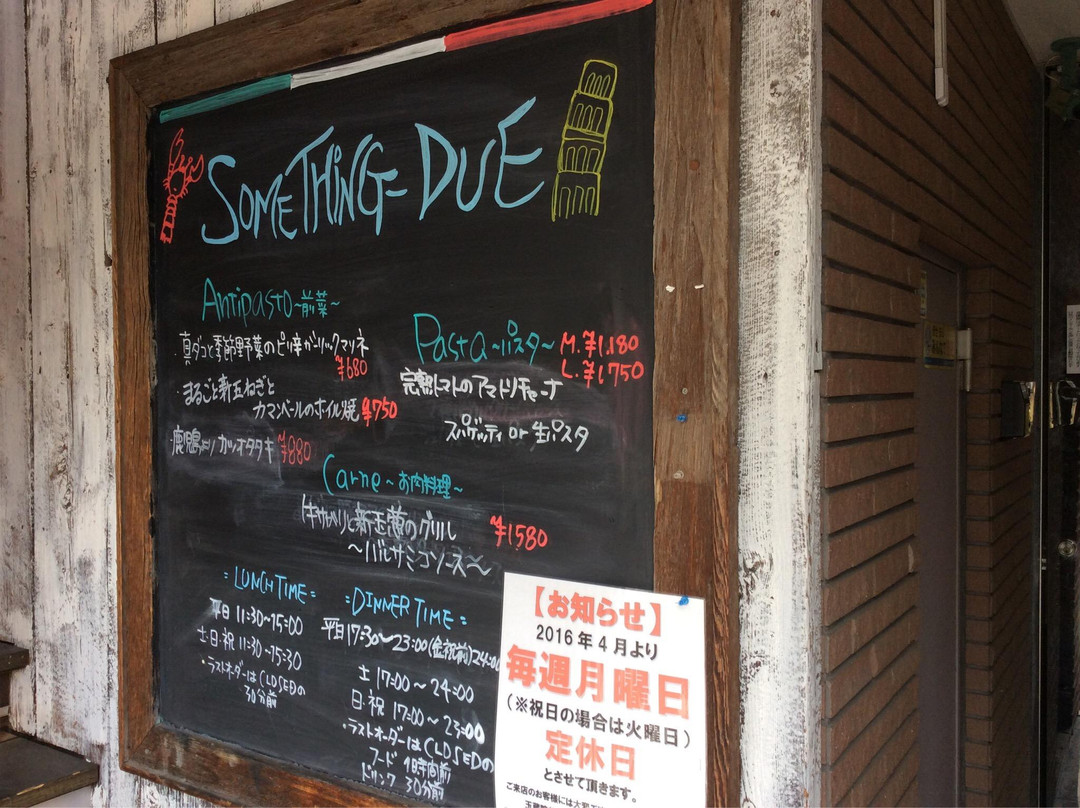 SOMETHING-DUE
Antipasto ~前菜~
・真ダコと季節野菜のピリ辛ガーリックマリネ
¥680
・まるごと新玉ねぎと
カマンベールのホイル焼 ¥750
・鹿児島 カツオタタキ ¥880
Pasta ~パスタ~ M.¥1.180
L.¥1750
完熟トマトのアマトリチャーナ
スパゲッティ or 生パスタ
Carne ~お肉料理~
と新玉葱のグリル ¥1580
~バルサミコソース~
=LUNCH TIME=
平日 11:30~15:00
土・日・祝 11:30~15:30
・ラストオーダーはCLOSEDの
30分前
=DINNER TIME=
平日 17:30~23:00(金・祝前)24:00
土 17:00~24:00
日・祝 17:00~23:00
・ラストオーダーはCLOSEDの
フード 1時間前
ドリンク 30分前
【お知らせ】
2016年4月より
毎週月曜日
(※祝日の場合は火曜日)
定休日
とさせて頂きます。
ご来店のお客様には大変